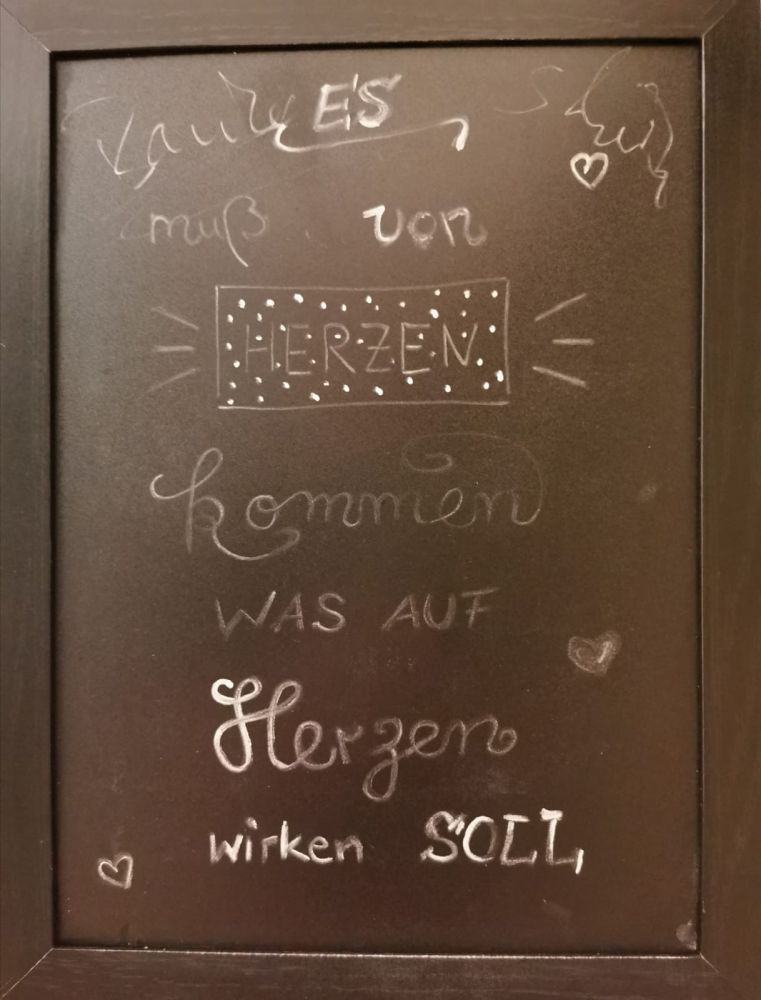 ES
muß von
HERZEN
kommen
WAS AUF
Herzen
wirken SOLL